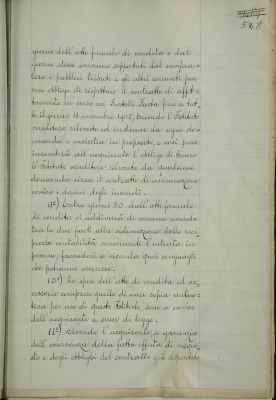 548
giorno dell'atto formale di vendita e dal
giorno stesso saranno sopportati dal compra-
tore i pubblici tributi e gli altri consueti pesi
con obbligo di rispettare il contratto di affit-
tamento in corso coi fratelli fino a tut-
to il giorno 11 novembre 1908, tenendo l'Istituto
venditore rilevato ed indenne da ogni do-
manda e molestia in proposito, e così pure
incomberà all'acquirente l'obbligo di tenere
l'Istituto venditore rilevato da qualsiasi
domanda circa il contratto di assicurazione
contro i danni degl'incendi.
9°) Entro giorni 30 dall'atto formale
di vendita si addiverrà di comune accordo
tra le due parti alla sistemazione della reci-
proca contabilità concernenti l'entrata in
possesso, facendosi a vicenda quei conguagli
che potranno occorrere.
10°) Le spese dell'atto di vendita ed ac-
cessorie comprese quelle di una copia auten-
tica per uso di questo Istituto, sono a carico
dell'acquirente a senso di legge.
11°) Avendo l'acquirente, a garanzia
dell'osservanza della fatta offerta di acqui-
sto e degli obblighi del contratto già depositato